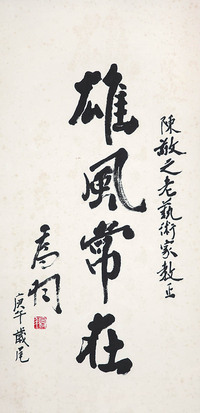 陳敬之老藝術家教正
雄風常在
庚午歲尾